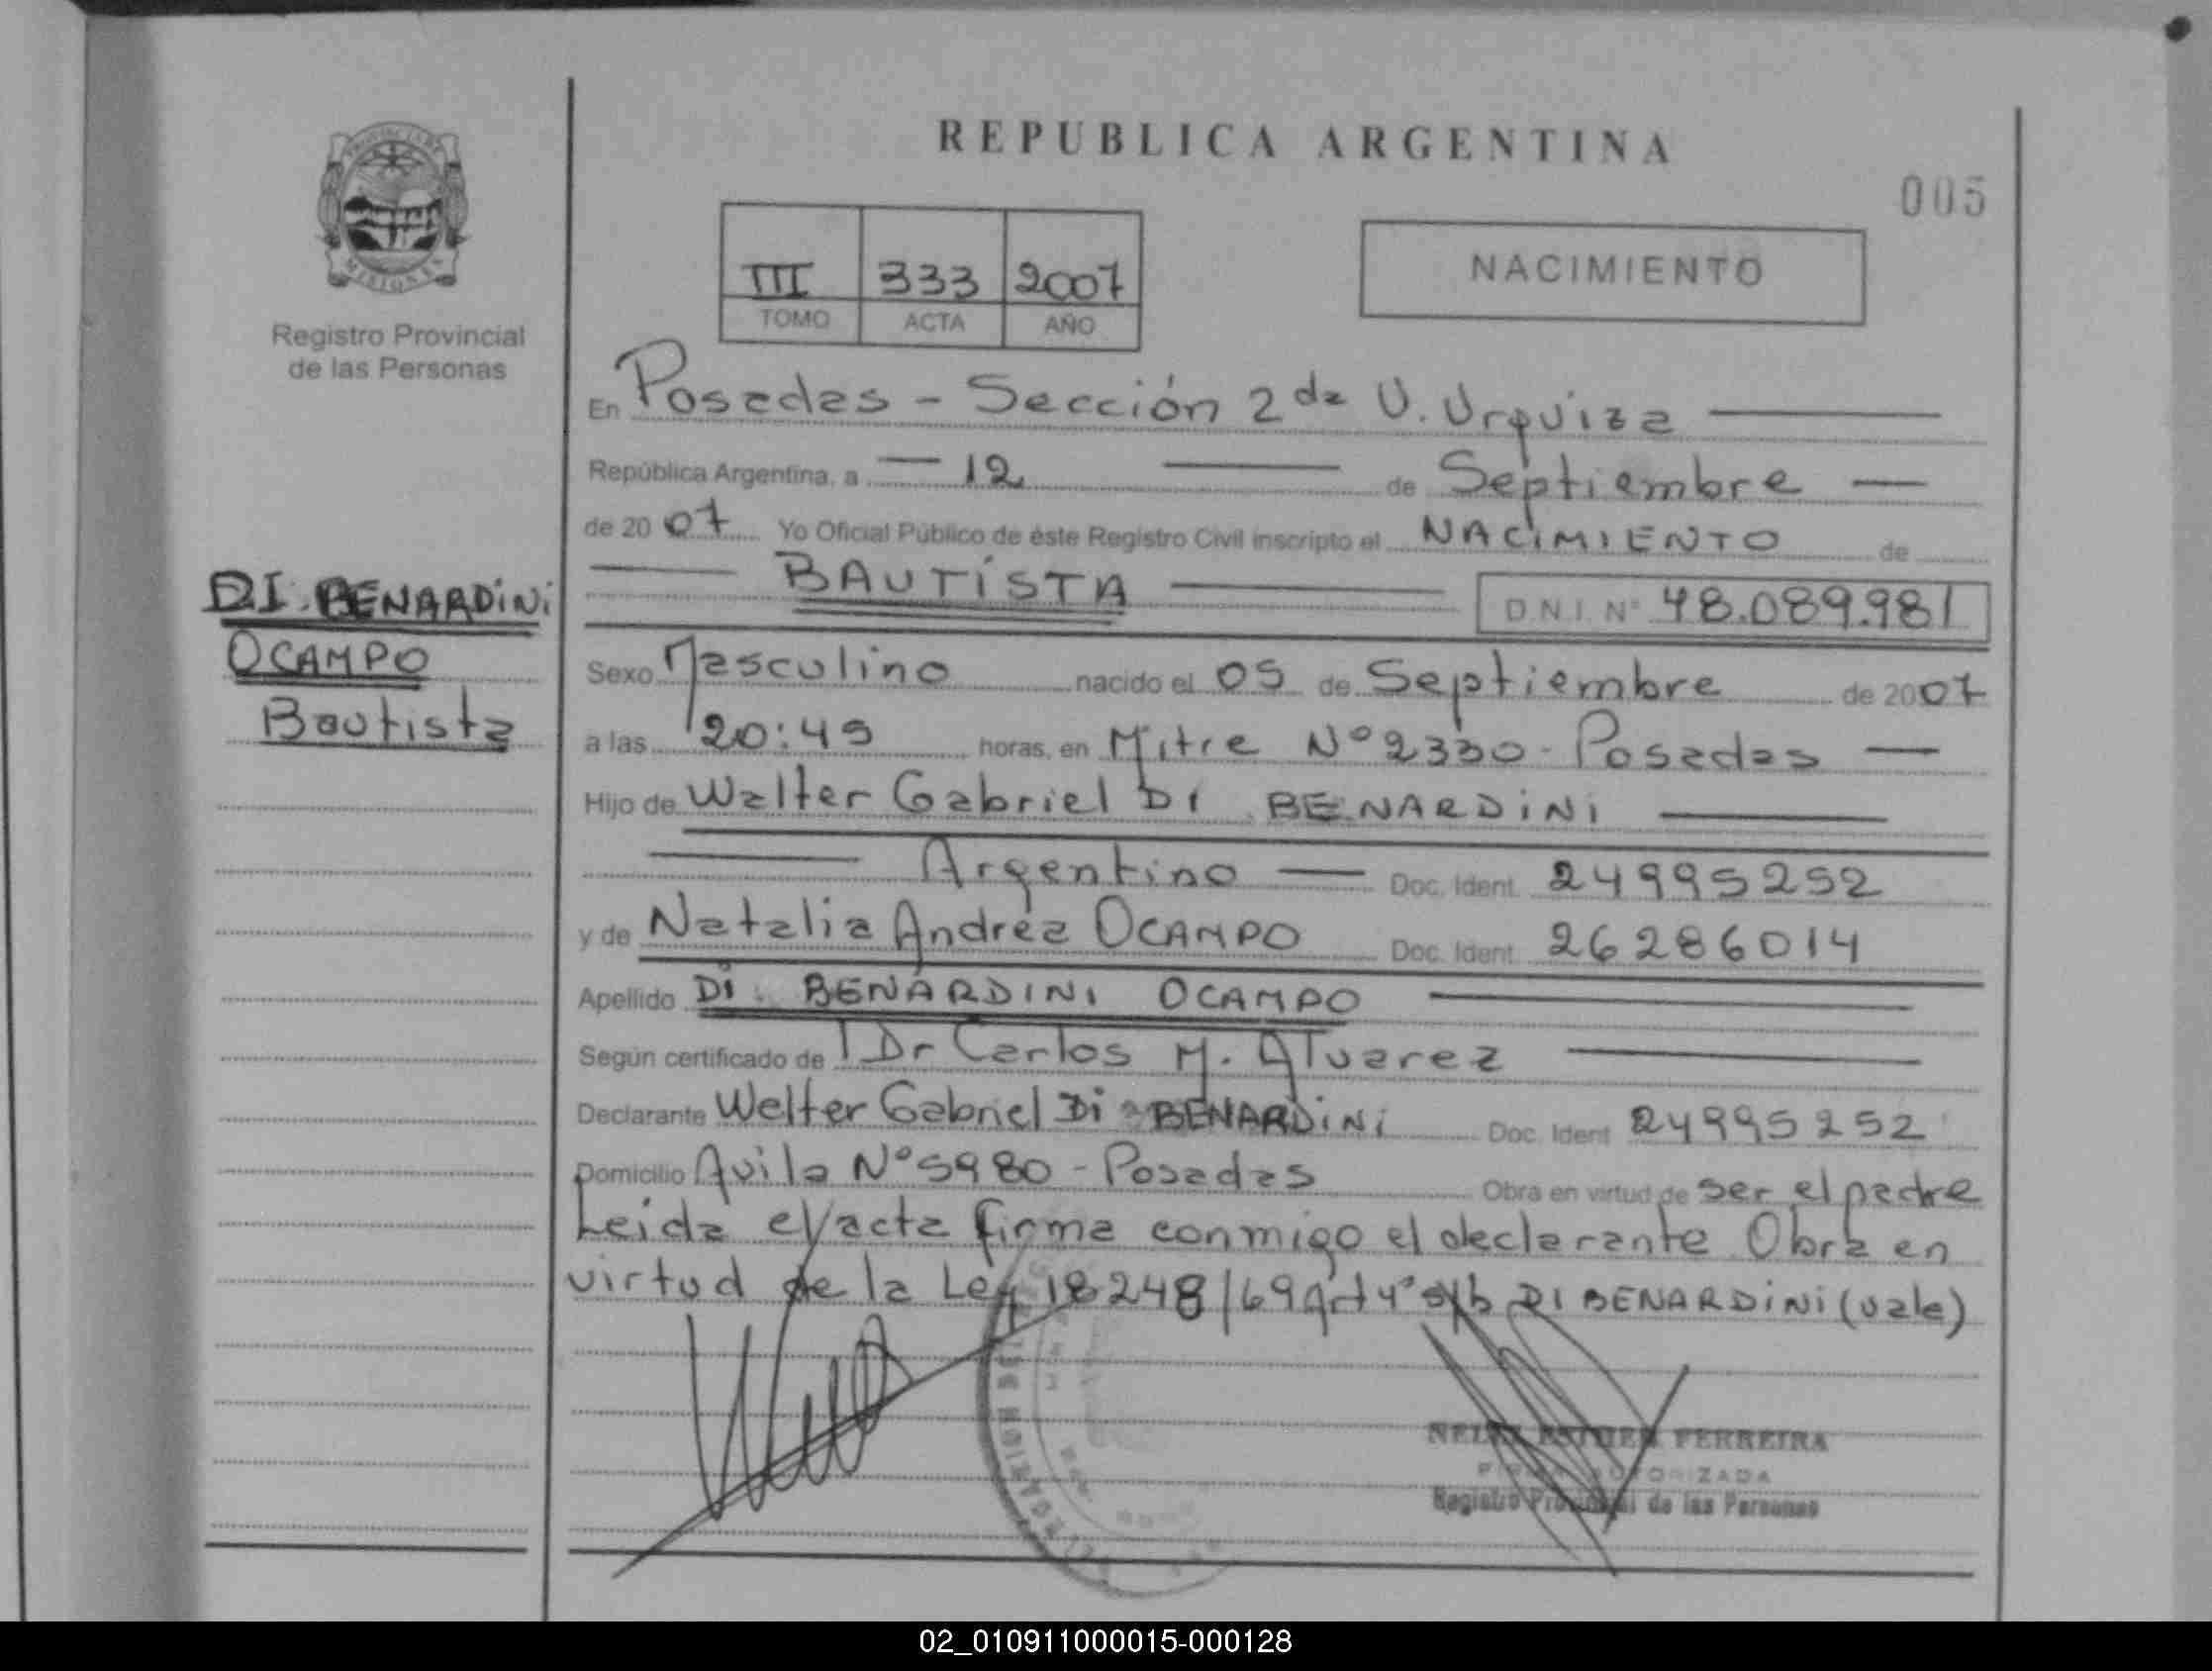 REPUBLICA ARGENTINA
005
PROVINCIA DE
MISIONES
Registro Provincial
de las Personas
III 333 2007
TOMO ACTA AÑO
NACIMIENTO
En Posadas - Sección 2da U. Urquiza
República Argentina, a 12 de Septiembre
de 2007 Yo Oficial Público de éste Registro Civil inscripto el NACIMIENTO de
BAUTISTA D.N.I. Nº 48.089.981
DI BENARDINI
OCAMPO
Bautista
Sexo Masculino nacido el 05 de Septiembre de 2007
a las 20:45 horas, en Mitre Nº 2330 - Posadas
Hijo de Walter Gabriel DI BENARDINI
Argentino Doc. Ident. 24995252
y de Natalia Andrea OCAMPO Doc. Ident. 26286014
Apellido DI BENARDINI OCAMPO
Según certificado de Dr Carlos M. Alvarez
Declarante Walter Gabriel Di BENARDINI Doc. Ident. 24995252
Domicilio Avila Nº 5980 - Posadas Obra en virtud de ser el padre
Leida el acta firma conmigo el declarante Obra en
virtud de la Ley 18248/69 Art 4º s/b DI BENARDINI (vale)
FERREIRA
AUTORIZADA
Registro Provincial de las Personas
02_010911000015-000128